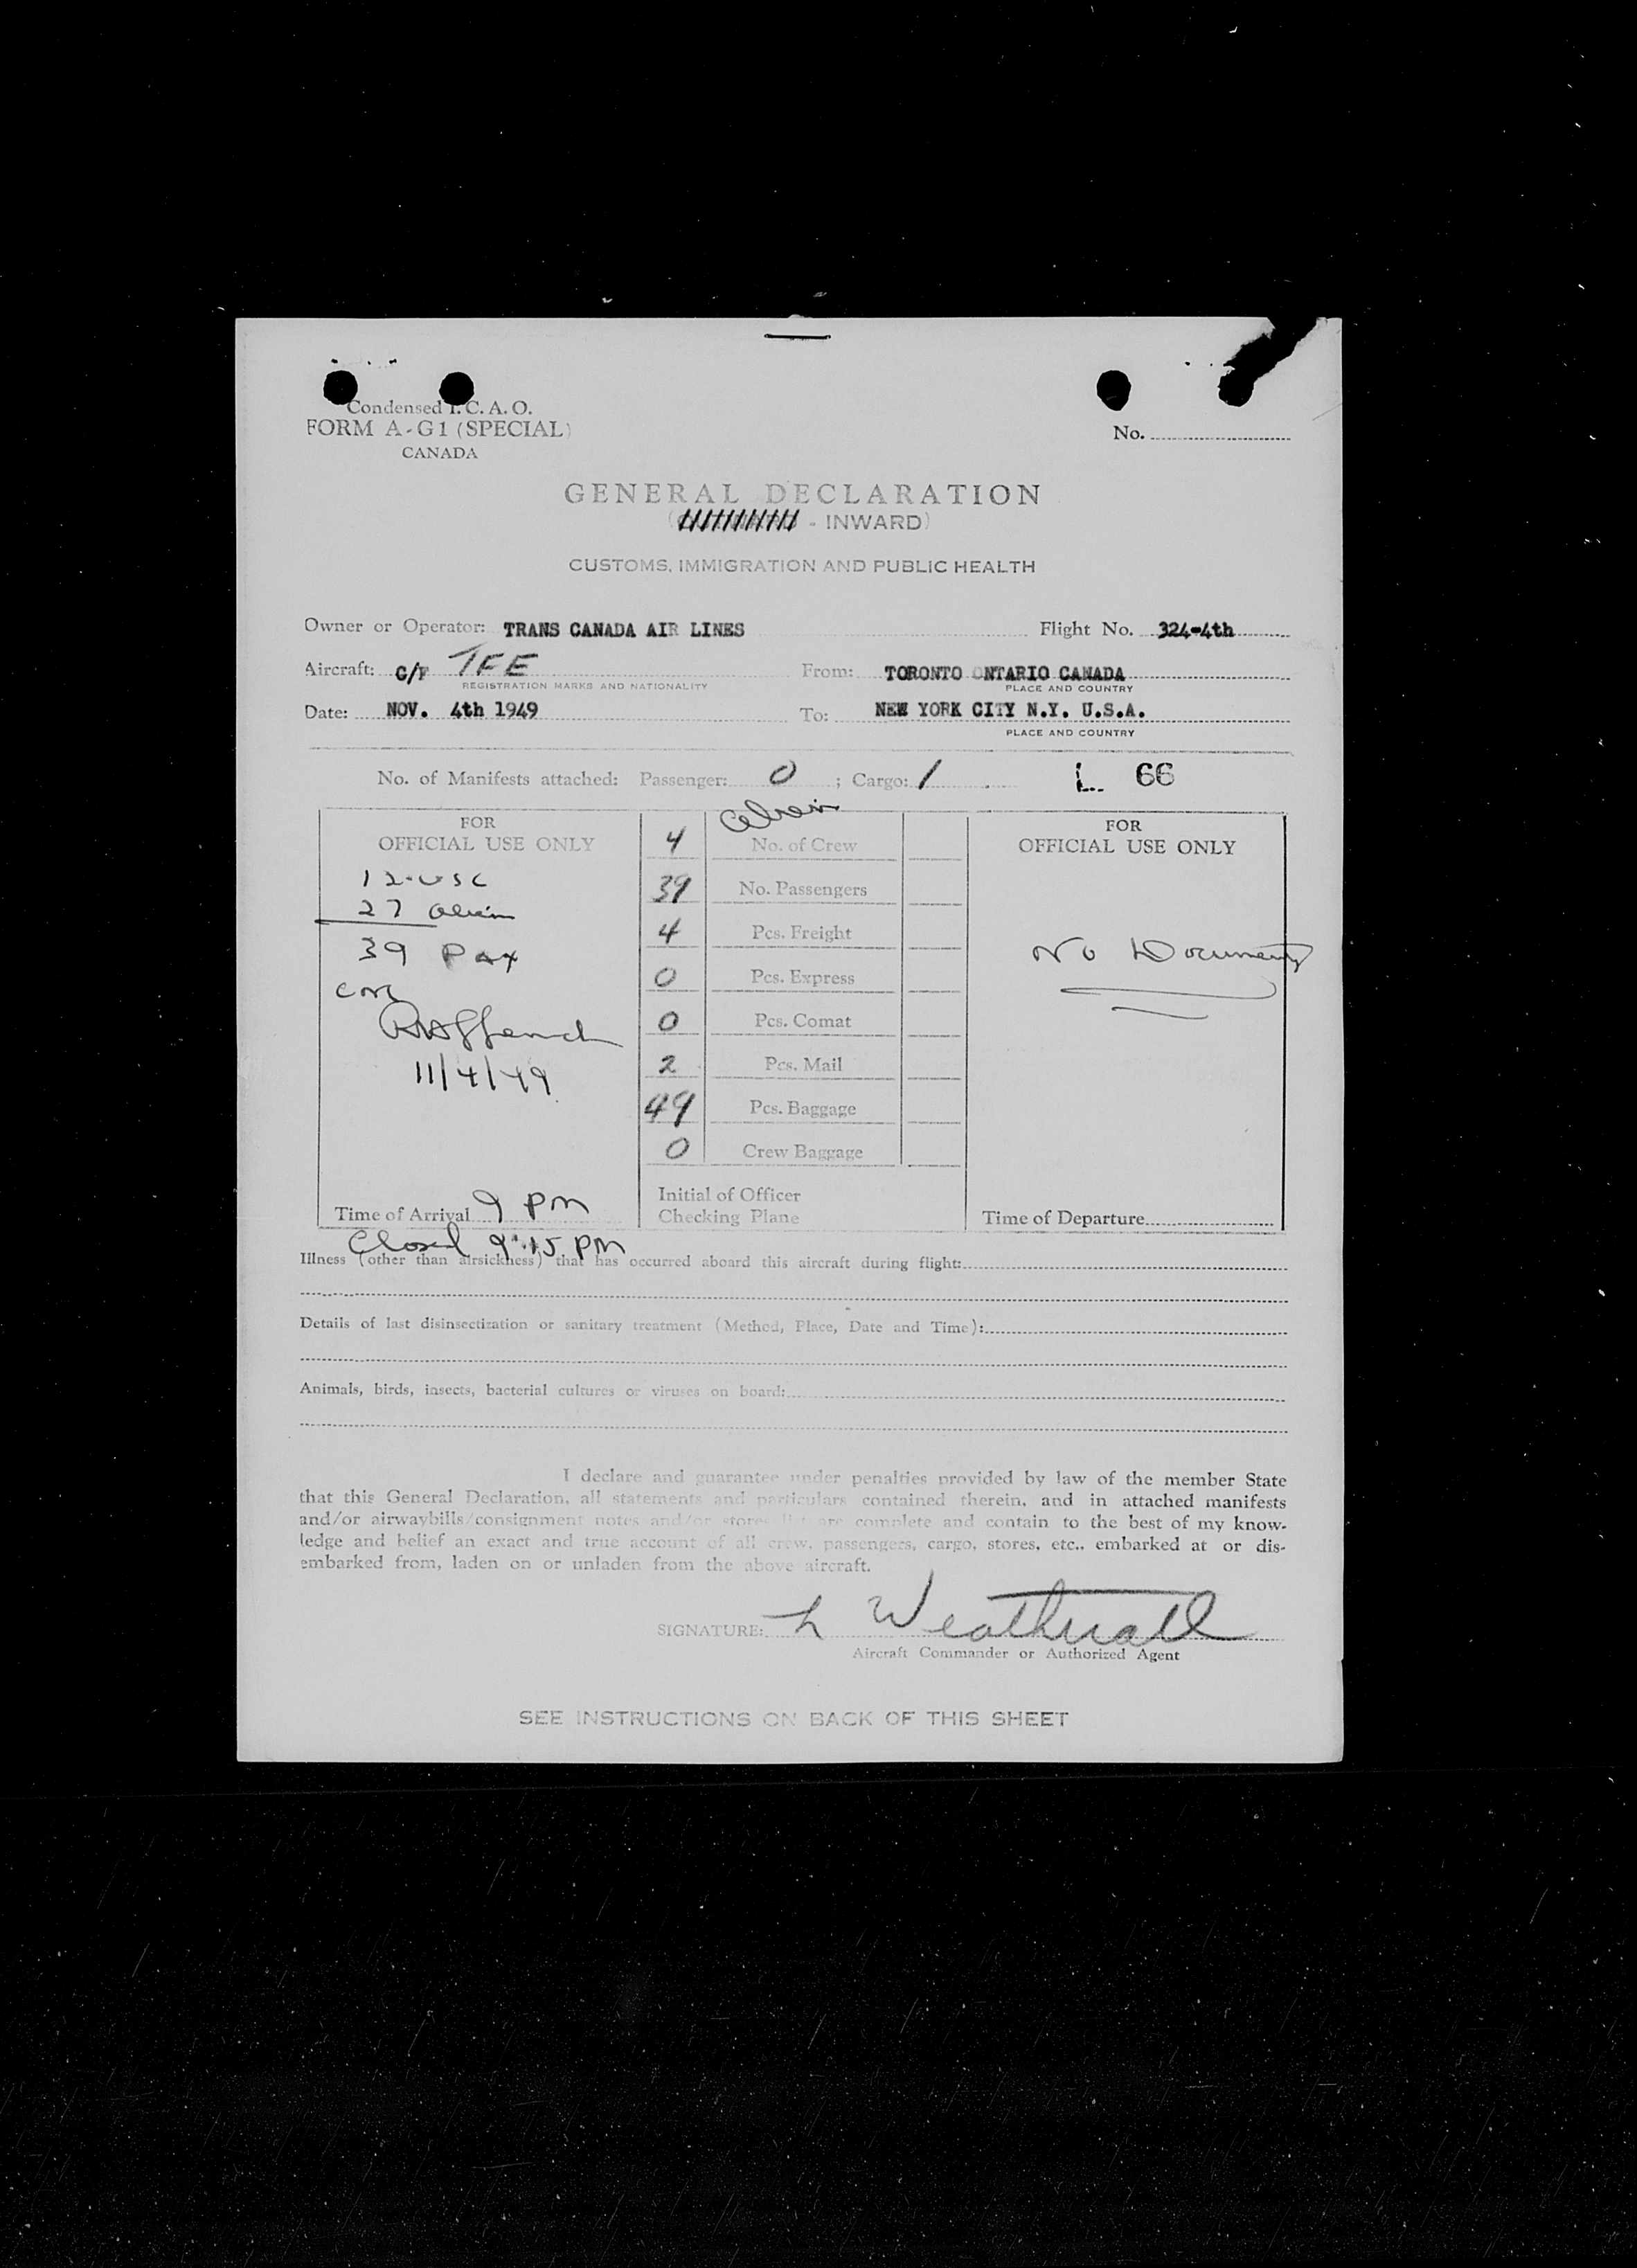 Condensed I. C. A. O.
FORM A-G1 (SPECIAL)
CANADA
No.
GENERAL DECLARATION
- INWARD)
CUSTOMS, IMMIGRATION AND PUBLIC HEALTH
Owner or Operator: TRANS CANADA AIR LINES Flight No. 324-4th
Aircraft: C/F TFE From: TORONTO ONTARIO CANADA
REGISTRATION MARKS AND NATIONALITY PLACE AND COUNTRY
Date: NOV. 4th 1949 To: NEW YORK CITY N.Y. U.S.A.
PLACE AND COUNTRY
No. of Manifests attached: Passenger: 0 ; Cargo: 1 L 66
FOR
OFFICIAL USE ONLY
12-USC
27 alien
39 Pax
11/4/49
Time of Arrival 9 PM
Closed 9:15 PM
alien
4 No. of Crew
39 No. Passengers
4 Pcs. Freight
0 Pcs. Express
0 Pcs. Comat
2 Pcs. Mail
49 Pcs. Baggage
0 Crew Baggage
Initial of Officer
Checking Plane
FOR
OFFICIAL USE ONLY
No Documents
Time of Departure
Illness (other than airsickness) that has occurred aboard this aircraft during flight:
Details of last disinsectization or sanitary treatment (Method, Place, Date and Time):
Animals, birds, insects, bacterial cultures or viruses on board:
I declare and guarantee under penalties provided by law of the member State
that this General Declaration, all statements and particulars contained therein, and in attached manifests
and/or airwaybills/consignment notes and/or stores list are complete and contain to the best of my know-
ledge and belief an exact and true account of all crew, passengers, cargo, stores, etc., embarked at or dis-
embarked from, laden on or unladen from the above aircraft.
SIGNATURE: L Weatherall
Aircraft Commander or Authorized Agent
SEE INSTRUCTIONS ON BACK OF THIS SHEET